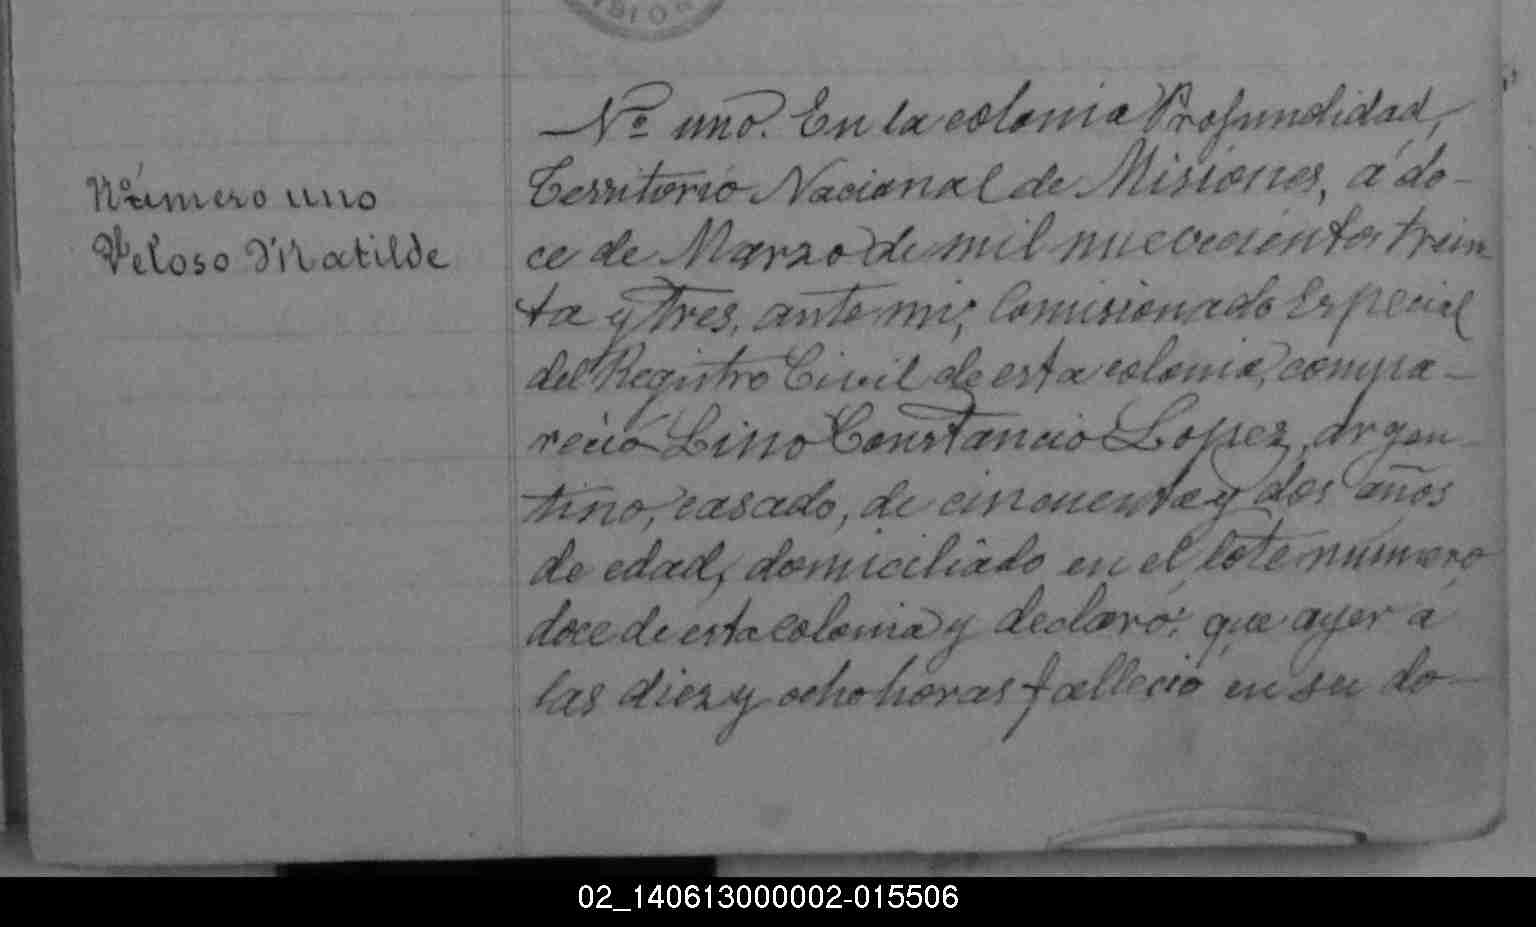 Nº uno. En la colonia Profundidad,
Territorio Nacional de Misiones, á do-
Número uno
Veloso Matilde
ce de Marzo de mil nuevecientos trein-
ta y tres, ante mi, Comisionado Especial
del Registro Civil de esta colonia, compa-
reció Lino Constancio Lopez, argen-
tino, casado, de cincuenta y dos años
de edad, domiciliado en el lote número
doce de esta colonia y declaró: que ayer á
las diez y ocho horas falleció en su do-
02_140613000002-015506